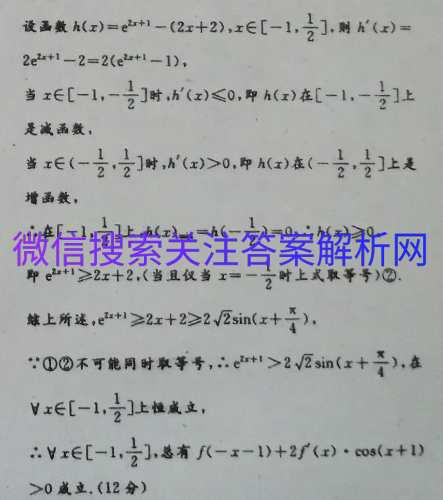 设函数 h(x)=e^{2x+1}-(2x+2),x∈[-1,1/2],则 h′(x)=
2e^{2x+1}-2=2(e^{2x+1}-1),
当 x∈[-1,-1/2]时,h′(x)≤0,即 h(x)在[-1,-1/2]上
是减函数,
当 x∈(-1/2,1/2]时,h′(x)>0,即 h(x)在(-1/2,1/2]上是
增函数,
∴在[-1,1/2]上,h(x)=h(-1/2)=0,∴h(x)≥0,
微信搜索关注答案解析网
即 e^{2x+1}≥2x+2,(当且仅当 x=-1/2时上式取等号)②.
综上所述,e^{2x+1}≥2x+2≥2√2sin(x+π/4),
∵①②不可能同时取等号,∴e^{2x+1}>2√2sin(x+π/4),在
∀x∈[-1,1/2]上恒成立,
∴∀x∈[-1,1/2],总有 f(-x-1)+2f′(x)·cos(x+1)
>0 成立.(12分)